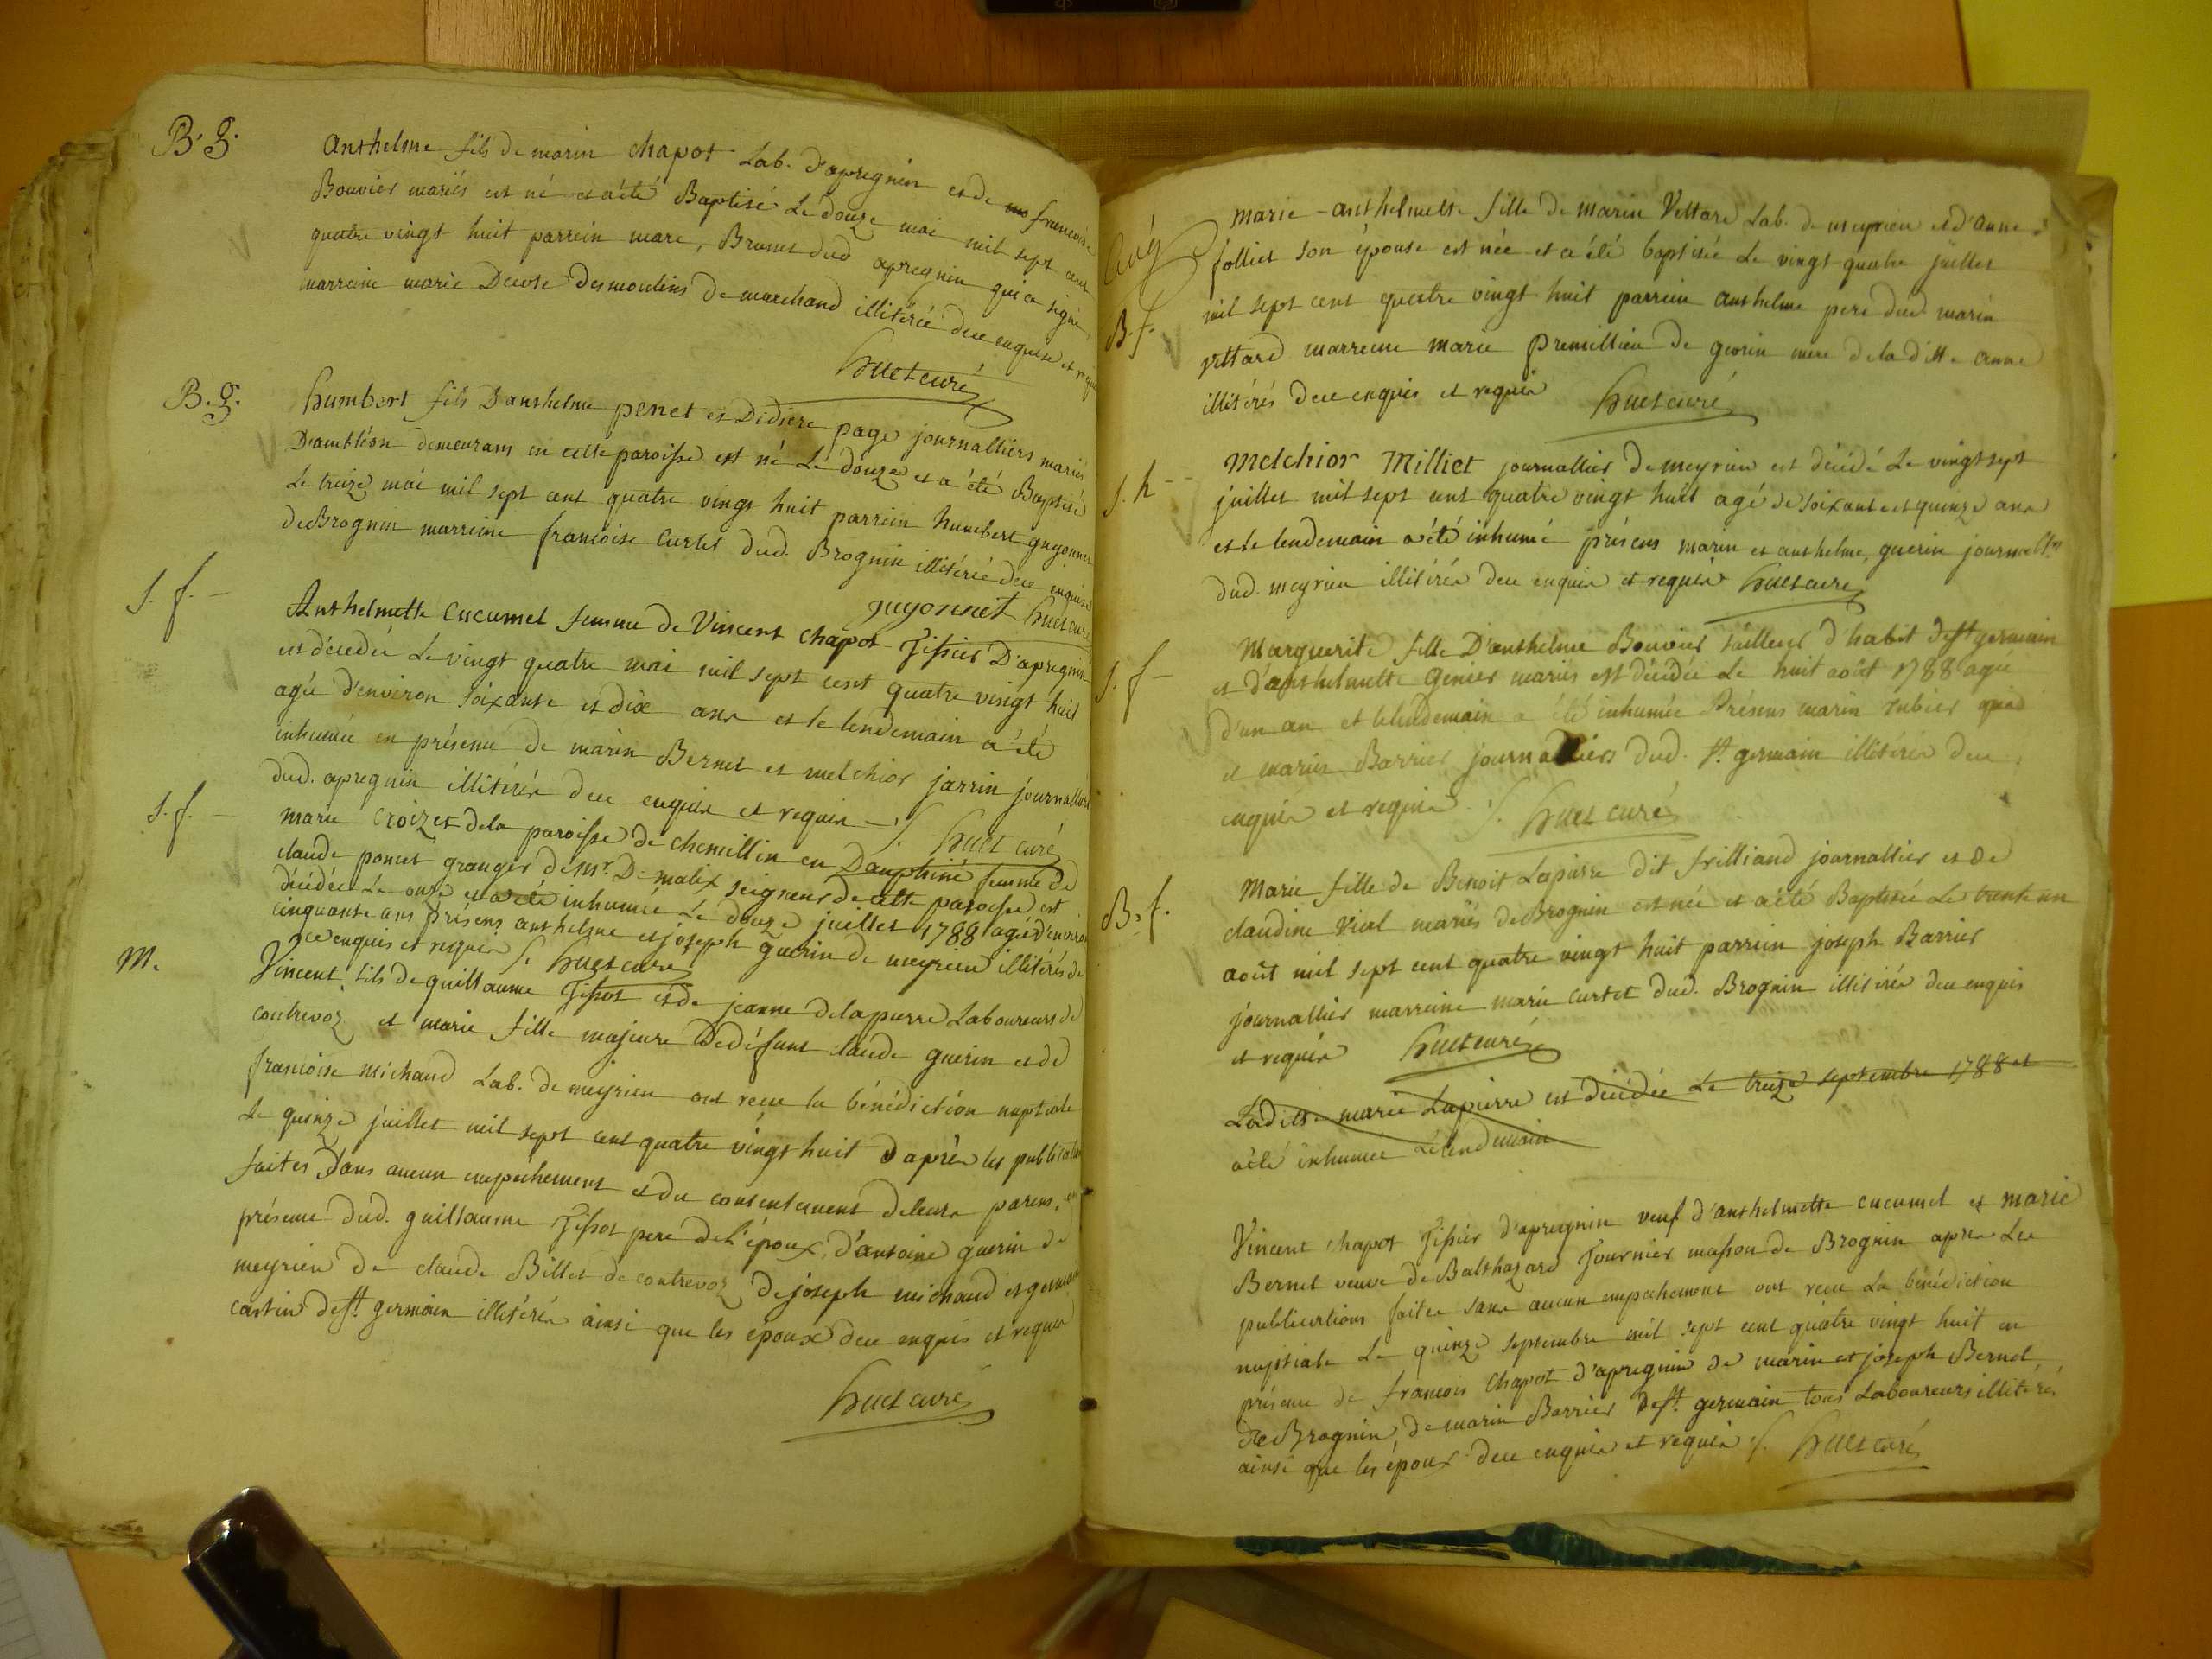 B. g.
anthelme fils de marin chapot Lab. d'apregnin et de françoise
Bouvier mariés est né et a été Baptisé Le douze mai mil sept cent
quatre vingt huit parrein marc, Brunet dud apregnin qui a signé
marreine marie Decote des moulins de marchand illiterée deue enquise et requise
huet curé
B. g.
humbert fils D'anthelme penet et Didiere page journalliers mariés
D'ambléon demeurans en cette paroisse est né Le douze et a été Baptisé
Le treize mai mil sept cent quatre vingt huit parrein humbert guyonnet
de Brognin marreine françoise Curtet dud. Brognin illitérée deue enquise
guyonnet huet curé
S. f. -
Anthelmette cucumel femme de Vincent chapot Tissier D'apregnin
est décedée Le vingt quatre mai mil sept cent quatre vingt huit
agée d'environ soixante et dix ans et le lendemain a été
inhumée en présence de marin Bernet et melchior jarrin journalliers
dud. apregnin illitérés deue enquis et requis -/. huet curé
S. f. -
marie croizet de la paroisse de chemillin en Dauphiné femme de
claude poncet granger de mr. De malix seigneur de cette paroisse est
décédée Le onze et a été inhumée Le douze juillet 1788 agée d'environ
cinquante ans présens anthelme et joseph guerin de meyrieu illitérés de
ce enquis et requis /. huet curé
M.
Vincent, fils de guillaume Tissot et de jeanne delapierre Laboureurs de
contrevoz et marie fille majeure De défunt claude guerin et de
françoise michaud Lab. de meyrieu ont recu la bénédiction nuptiale
Le quinze juillet mil sept cent quatre vingt huit d'après les publications
faites sans aucun empechement et du consentement de leurs parens, en
présence dud. guillaume Tissot pere de l'époux, d'antoine guerin de
meyrieu de claude Billet de contrevoz de joseph michaud et germain
castin de st. germain illitérés ainsi que les époux deue enquis et requis
huet curé
B. f.
marie-anthelmette fille de marin Vettard Lab. de meyrieu et d'anne
folliet son épouse est née et a été baptisée Le vingt quatre juillet
mil sept cent quatre vingt huit parrein anthelme pere dud. marin
vettard marreine marie premillieu de mere de la ditte anne
illitérés deue enquis et requis huet curé
S. h --
melchior Milliet journallier de meyrieu est décédé Le vingt sept
juillet mil sept cent quatre vingt huit agé de soixante et quinze ans
et le lendemain a été inhumé présens marin et anthelme, guerin journallrs
dud. meyrieu illitérés deue enquis et requis huet curé
S. f -
Marguerite fille D'anthelme Bouvier tailleur d'habit de st germain
et d'anthelmette Genier mariés est décédée Le huit août 1788 agée
d'un an et le lendemain a été inhumée Présens marin rubier
et marin Barrier journalliers dud. st. germain illitérés deue
enquis et requis /. huet curé
B. f.
Marie fille de Benoit Lapierre dit frilliand journallier et de
claudine Vial mariés de Brognin est née et a été Baptisée Le trente un
août mil sept cent quatre vingt huit parrein joseph Barrier
journallier marreine marie curtet dud. Brognin illitérés deue enquis
et requis huet curé
Laditte marie Lapierre est décédée Le treize septembre 1788 et
a été inhumée Lelendemain
Vincent chapot Tissier d'apregnin veuf d'anthelmette cucumel et marie
Bernet veuve de Balthazard Tournier masson de Brognin après Les
publications faites sans aucun empechement ont recu La bénédiction
nuptiale Le quinze septembre mil sept cent quatre vingt huit en
présence de françois chapot d'apregnin de marin et joseph Bernet
de Brognin, de marin Barrier de st. germain tous Laboureurs illitérés
ainsi que les époux deue enquis et requis /. huet curé